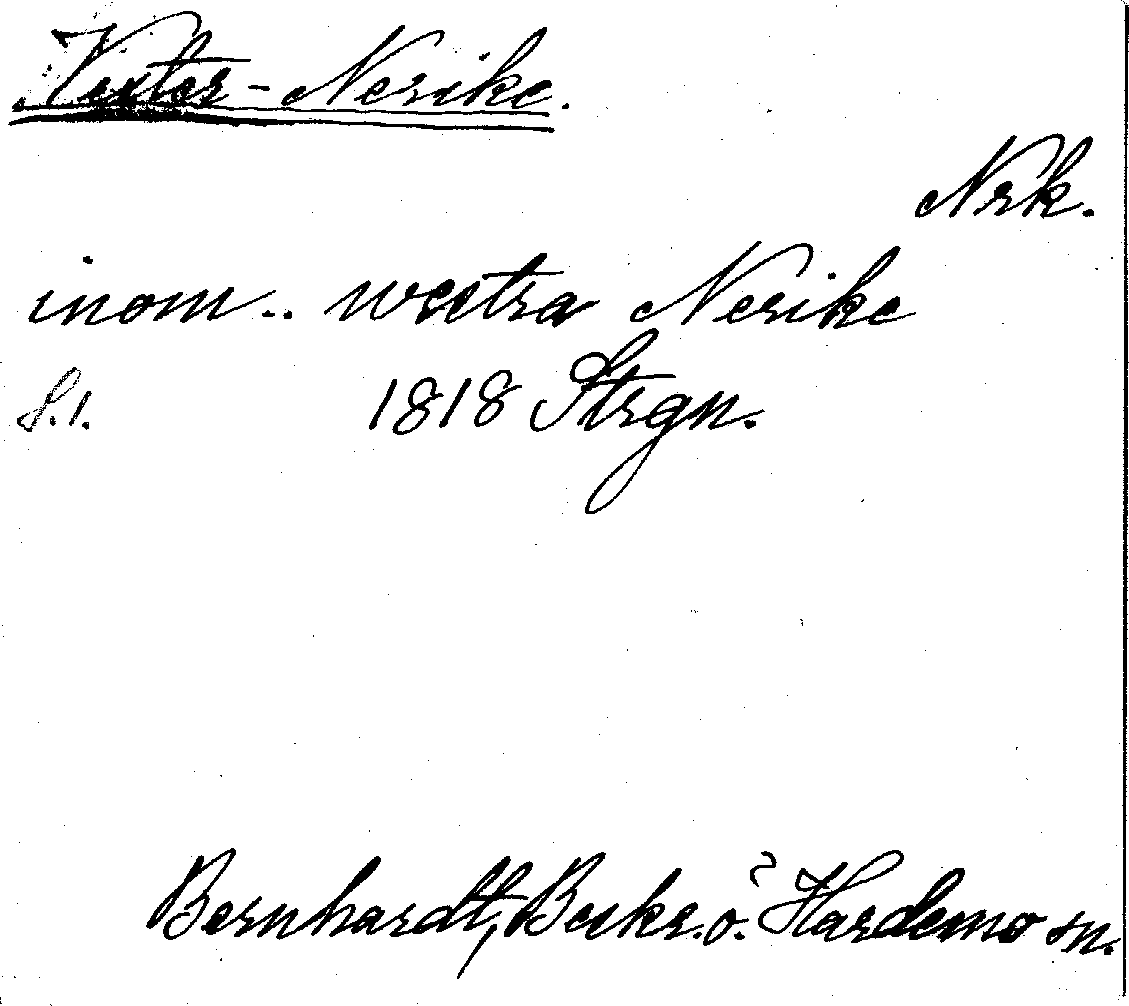 Vester-Nerike.
Nrk.
inom .. westra Nerike
S. 1. 1818 Strgn.
Bernhardt, Beskr. ö. Hardemo sn.